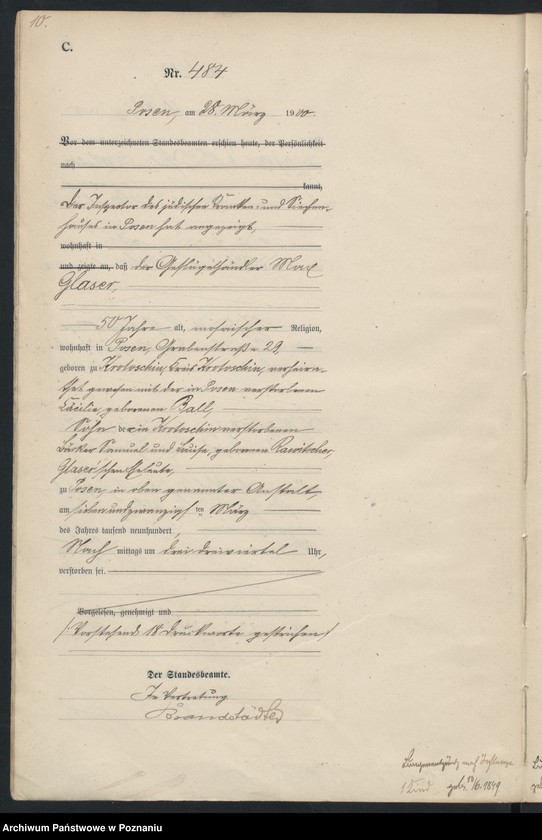 10.
C.
Nr. 484
Posen, am 28. März 1900.
Vor dem unterzeichneten Standesbeamten erschien heute, der Persönlichkeit
nach
kannt,
Der Inspector des jüdischen Kranken- und Siechen-
hauses in Posen hat angezeigt,
wohnhaft in
und zeigte an, daß der Geflügelhändler Max
Glaser,
50 Jahre alt, mosaischer Religion,
wohnhaft in Posen, Grabenstraße 29,
geboren zu Krotoschin, Kreis Krotoschin, verheira-
thet gewesen mit der in Posen verstorbenen
Cäcilie, geborenen Ball,
Sohn der in Krotoschin verstorbenen
Bäcker Samuel und Luise, geborenen Rawitscher,
Glaser'schen Eheleute,
zu Posen, in oben genannter Anstalt,
am siebenundzwanzigsten März
des Jahres tausend neunhundert,
Nach mittags um drei dreiviertel Uhr,
verstorben sei.
Vorgelesen, genehmigt und
/Vorstehend 18 Druckworte gestrichen/
Der Standesbeamte.
In Vertretung
Brandstädter
1 Kind geb. 10/6. 1849
Archiwum Państwowe w Poznaniu